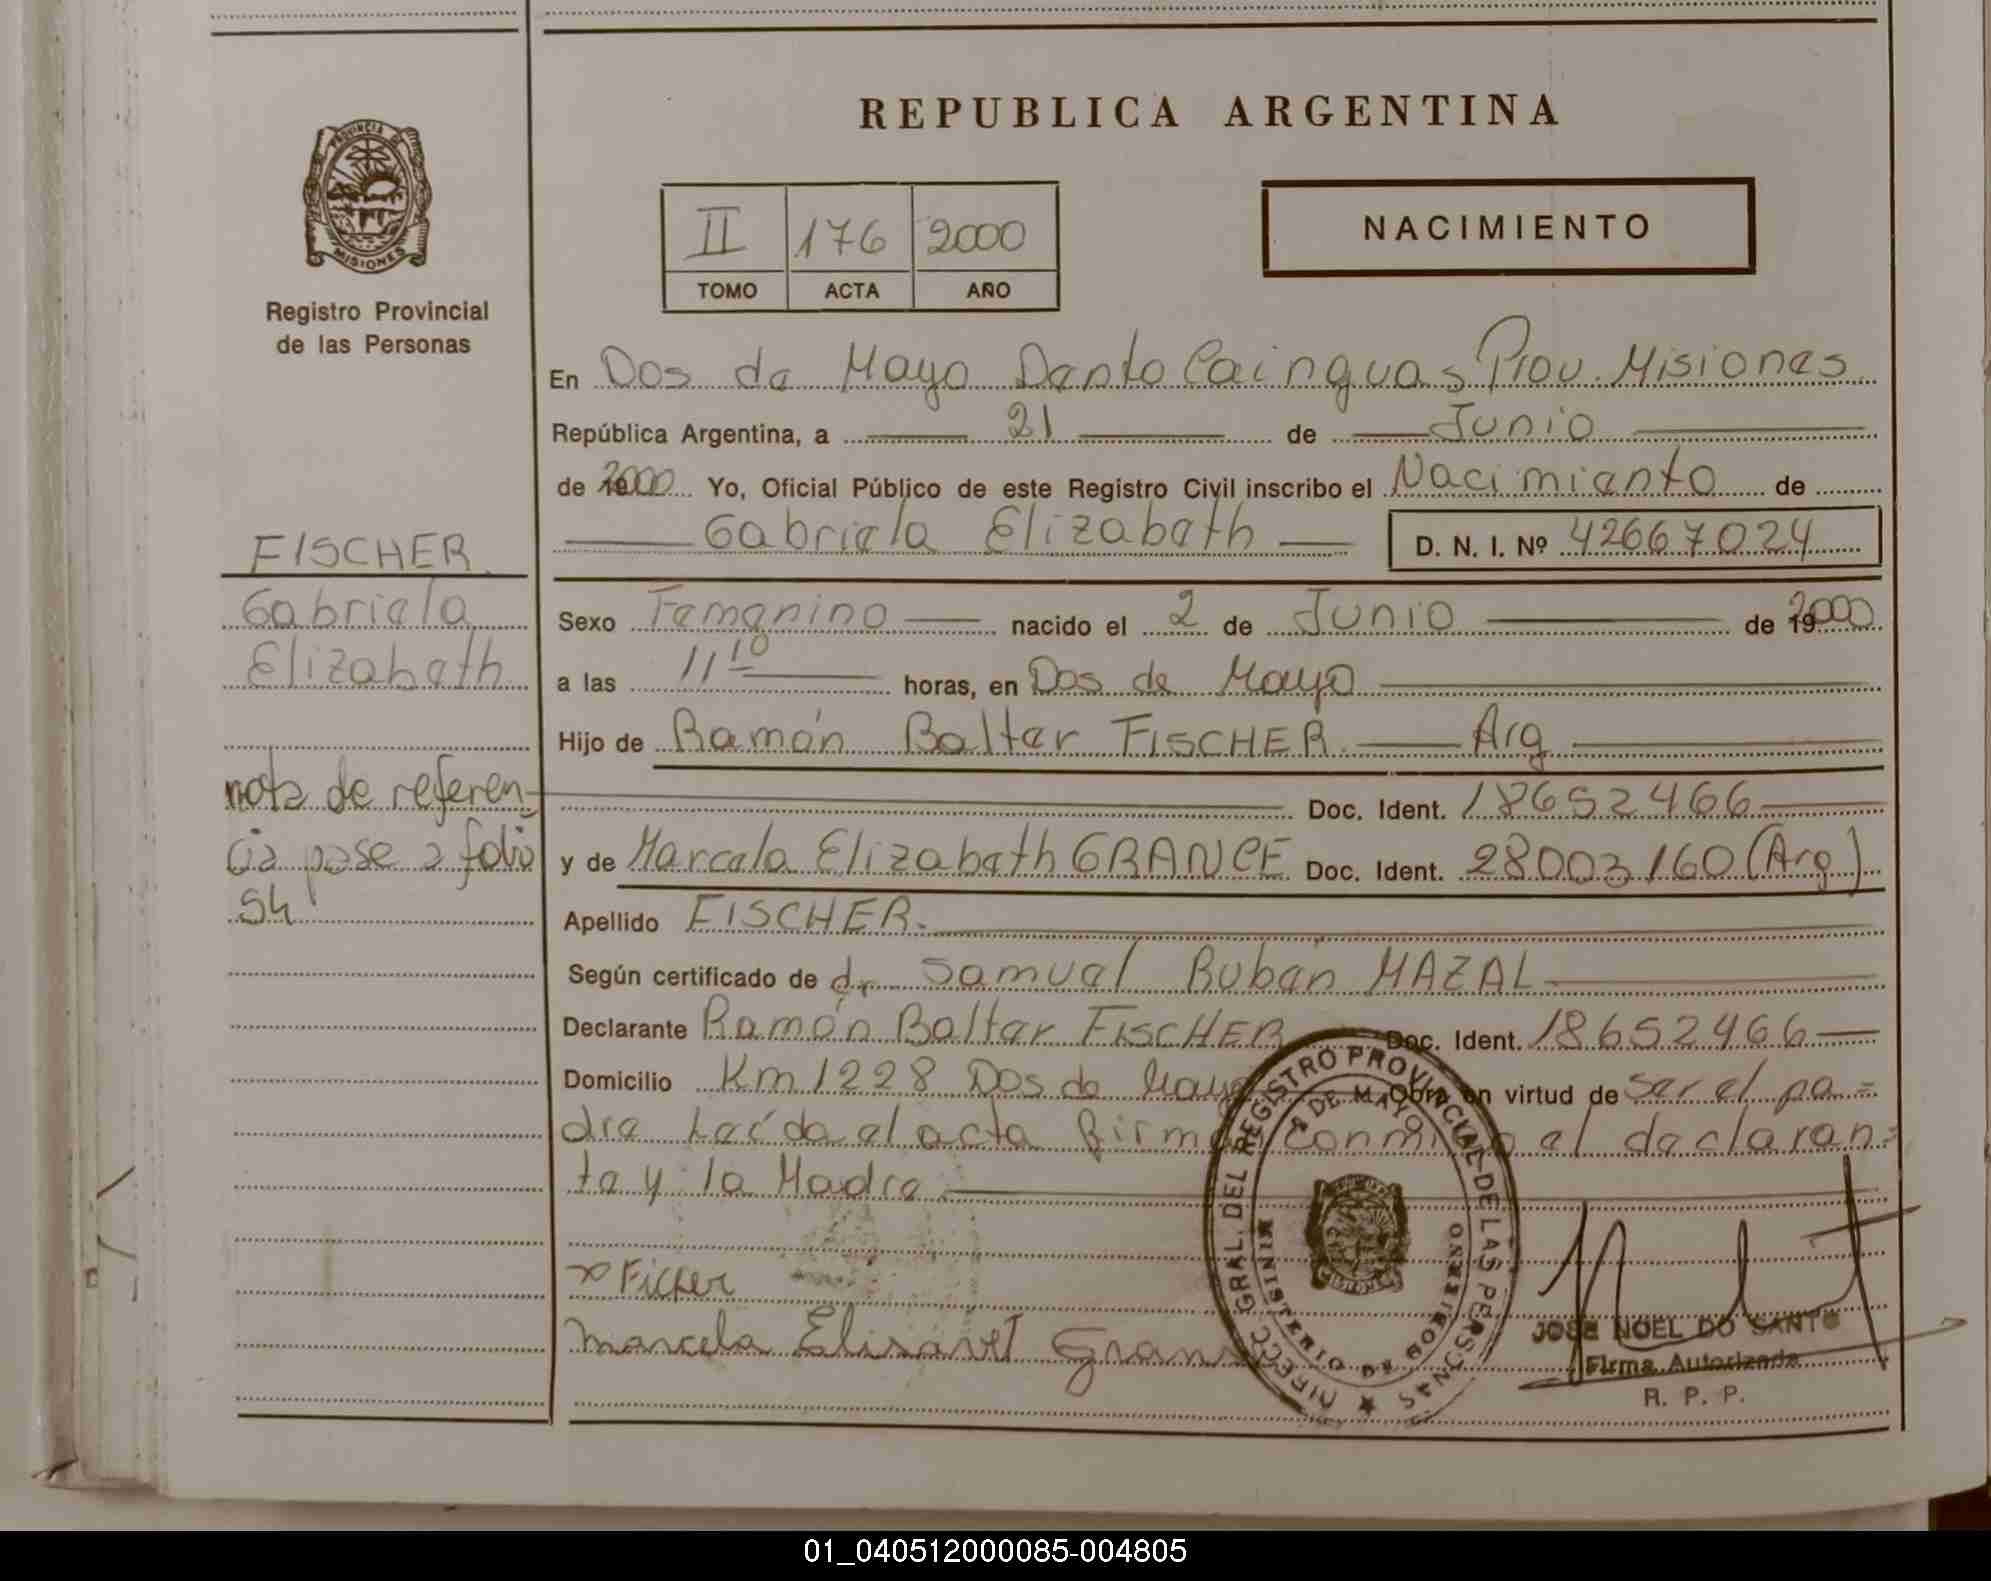 REPUBLICA ARGENTINA
PROVINCIA DE MISIONES
Registro Provincial
de las Personas
II 176 2000
TOMO ACTA AÑO
NACIMIENTO
En Dos de Mayo Depto Cainguas Prov. Misiones
República Argentina, a 21 de Junio
de 2000 Yo, Oficial Público de este Registro Civil inscribo el Nacimiento de
Gabriela Elizabeth D. N. I. Nº 42667024
FISCHER
Gabriela
Elizabeth
Sexo Femenino nacido el 2 de Junio de 2000
a las 11 10 horas, en Dos de Mayo
Hijo de Ramón Balter FISCHER Arg
Doc. Ident. 18652466
y de Marcela Elizabeth GRANCE Doc. Ident. 28003160 (Arg)
nota de referen-
cia pase a folio
54
Apellido FISCHER.
Según certificado de dr Samuel Ruben MAZAL
Declarante Ramón Balter FISCHER Doc. Ident. 18652466
Domicilio Km 1228 Dos de Mayo M. Obra en virtud de ser el pa=
dre Leída el acta firman conmigo el declaran=
te y la Madre
Ficher
Marcela Elisavet
DIRECC. GRAL. DEL REGISTRO PROVINCIAL DE LAS PERSONAS
2 DE MAYO
MINISTERIO DE GOBIERNO
JOSE NOEL DO SANTO
Firma Autorizada
R. P. P.
01_040512000085-004805